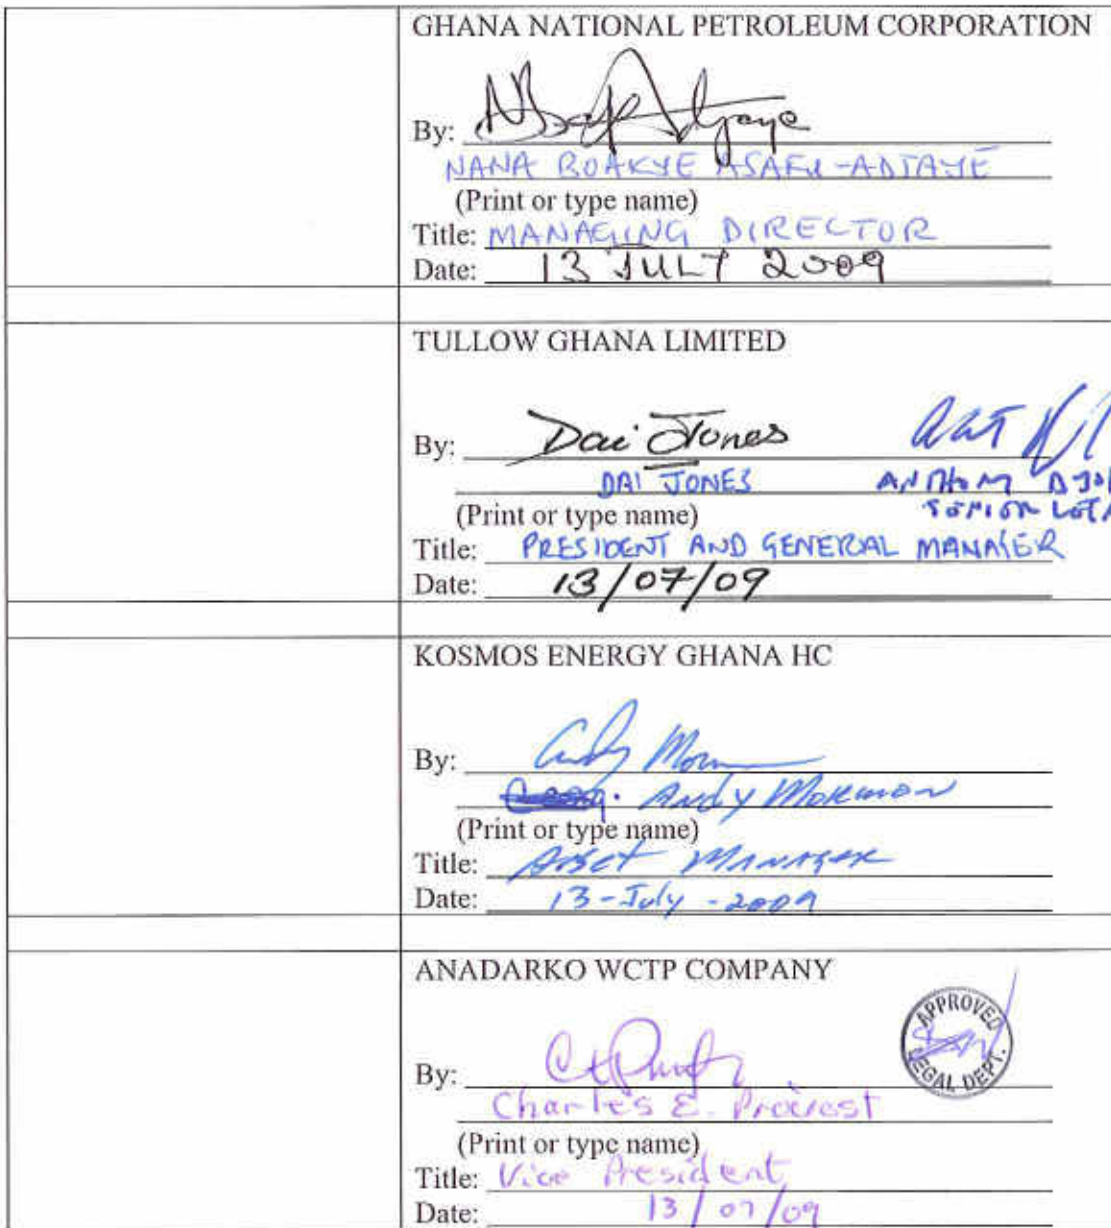 GHANA NATIONAL PETROLEUM CORPORATION
By:
NANA BOAKYE ASAFU-ADJAYE
(Print or type name)
Title: MANAGING DIRECTOR
Date: 13 JULY 2009
TULLOW GHANA LIMITED
By: Dai Jones
DAI JONES
(Print or type name)
Title: PRESIDENT AND GENERAL MANAGER
Date: 13/07/09
KOSMOS ENERGY GHANA HC
By:
Andy Mormon
(Print or type name)
Title: Asset Manager
Date: 13-July-2009
ANADARKO WCTP COMPANY
APPROVED
LEGAL DEPT.
By:
Charles E. Provost
(Print or type name)
Title: Vice President
Date: 13/07/09